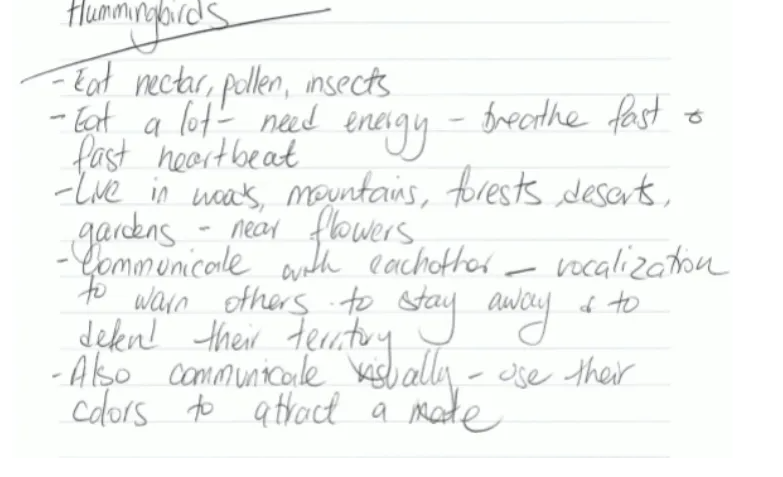 Hummingbirds
- Eat nectar, pollen, insects
- Eat a lot - need energy - breathe fast &
fast heartbeat
- Live in woods, mountains, forests, deserts,
gardens - near flowers
- Communicate with eachother - vocalization
to warn others to stay away & to
defend their territory
- Also communicate visually - use their
colors to attract a mate